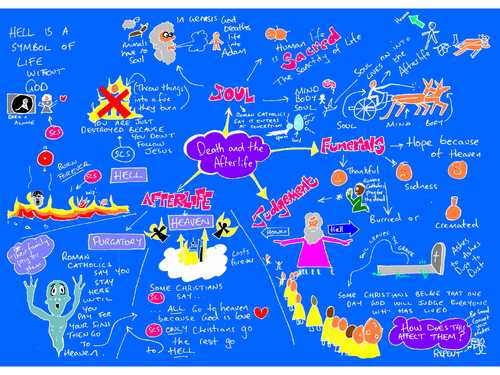 HELL IS A
SYMBOL OF
LIFE
WITHOUT
GOD
DARK +
ALONE
SCS
ANIMALS
HAVE NO
SOUL
IN GENESIS GOD
BREATHES
LIFE
INTO
ADAM
HUMAN LIFE
IS Sacred
The SANCTITY of Life
SOUL
ROMAN CATHOLICS
SAY IT ENTERS
AT CONCEPTION
MIND
BODY
SOUL
SOUL
LIVES ON INTO
THE
Afterlife
SOUL
MIND
BODY
(Throw things
into a fire
they burn)
YOU ARE JUST
DESTROYED BECAUSE
YOU DON'T
FOLLOW
JESUS
SCS
BURN
FOREVER
SCS
HELL
Death and the
Afterlife
FUNERALS
Hope because
of Heaven
Thankful
ROMAN
CATHOLICS
pray for
the dead
Sadness
Burried or
Cremated
Ashes
to
Ashes
Dust
to
Dust
SOUL LEAVES GRAVE
AFTERLIFE
HEAVEN
Lasts
forever
PURGATORY
ROMAN
CATHOLICS
SAY YOU
STAY
HERE
UNTIL
YOU
PAY FOR
YOUR SINS
THEN GO
TO
HEAVEN
SOME CHRISTIANS
SCS SAY...
...ALL Go to heaven
because GOD is LOVE
SCS ONLY Christians go
the rest go
to HELL
Judgement
HEAVEN
Hell
SOME CHRISTIANS BELIEVE THAT ONE
DAY GOD WILL JUDGE EVERYONE
WHO HAS LIVED
HOW DOES THIS
AFFECT THEM?
REPENT